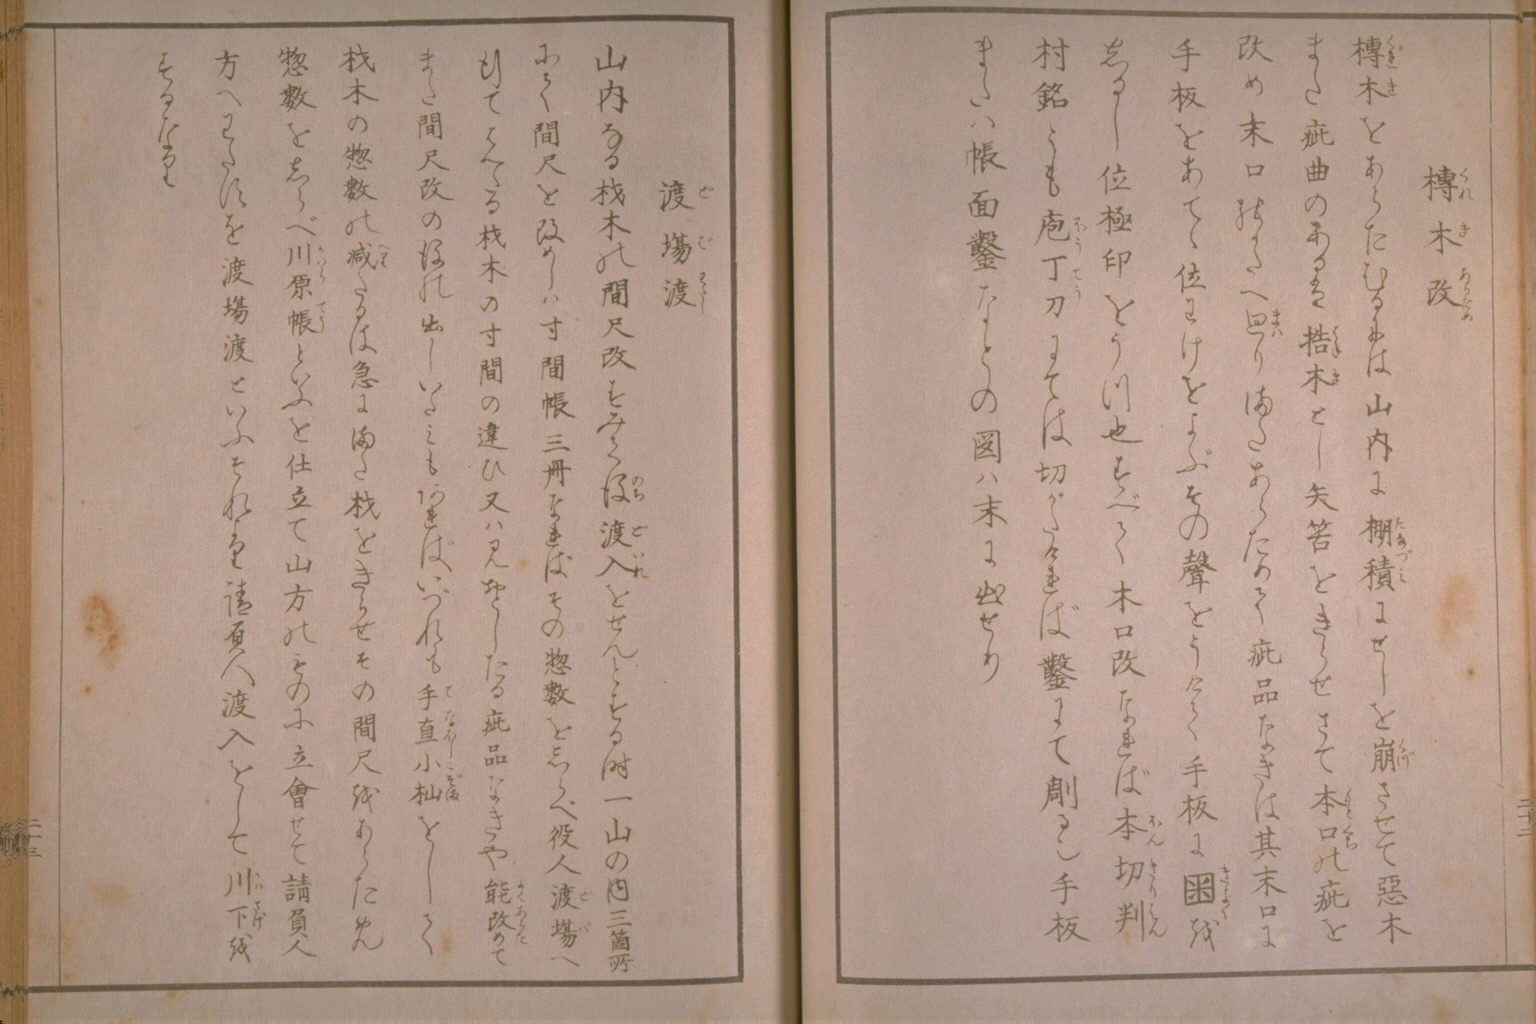 榑木改
榑木をあらたむるには山内に棚積にせしを崩させて惡木
また疵曲のあるを捁木とし矢筈をきらせさて本口の疵を
改め末口のかたへ囬りまたあらためて疵品なきは其末口に
手板をあてゝ位わけをよぶその聲をうけて手板に圀を
しるし位極印をうつ也すべて木口改なれば本切判
村銘とも庖丁刀にては切がたければ鑿にて彫るし手板
または帳面鑿などの図ハ末に出せり
渡場渡
山内なる材木の間尺改すみて後渡入をせんとする時一山の内三箇所
おゐて間尺を改めしハ寸間帳三冊なればその惣数をしらべ役人渡場へ
行てならべたる材木の寸間の違ひ又ハ見おとしたる疵品なきや能改めて
また間尺改の後の出しいたみも有ればいづれも手直小杣をしして
材木の惣數の減たるは急にまた材をきらせその間尺をあらためん
惣數をしらべ川原帳といふを仕立て山方のものに立會せて請負人
方へわたすを渡場渡といふそれより請負人渡入をして川下を
するなり
二十二
二十三